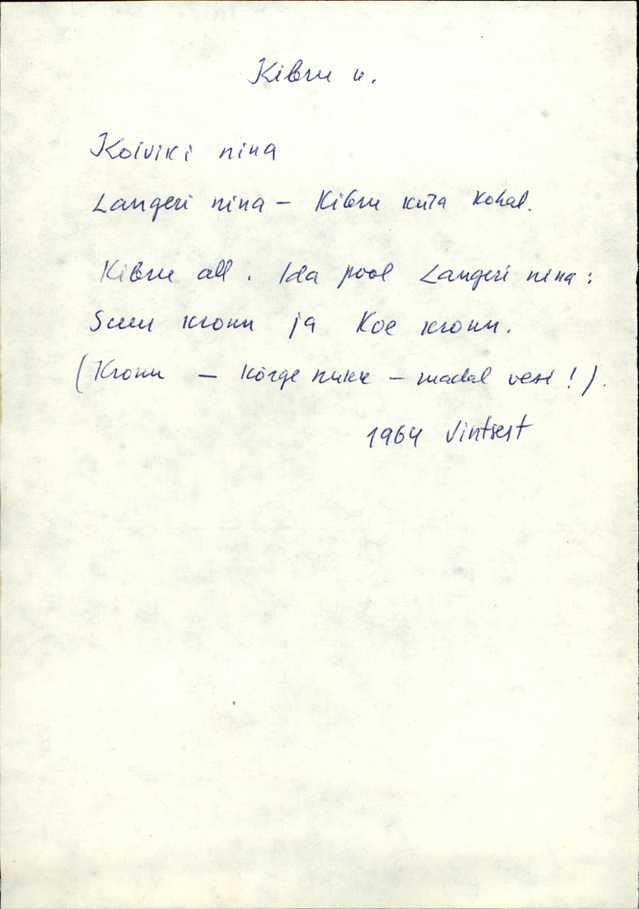 Kibru k.
Koiviki nina
Langeri nina - Kibru küla kohal.
Kibru all. Ida pool Langeri nina:
Suur kronn ja Koe kronn.
(Kronn - kõrge nukk - madal vesi!).
1964 Vintsert